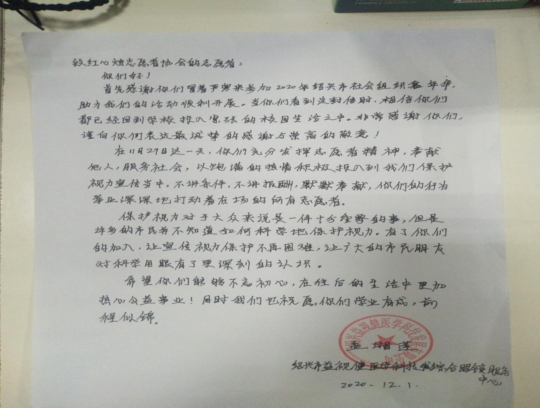 致红心烛志愿者协会的志愿者:
你们好!
首先感谢你们冒着严寒来参加2020年绍兴市社会组织嘉年华,
助力我们的活动顺利开展。当你们看到这封信时,相信你们
都已经回到学校投入紧张的校园生活之中。非常感谢你们,
谨向你们表达最诚挚的感谢与崇高的敬意!
在11月29日这一天,你们充分发挥志愿者精神,奉献
他人,服务社会,以饱满的热情积极投入到我们保护
视力宣传当中,不讲条件,不讲报酬,默默奉献,你们的行为
举止深深地打动着在场的所有志愿者。
保护视力对于大众来说是一件十分重要的事,但是
许多的市民并不知道如何科学地保护视力。有了你们
的加入,让宣传视力保护不再困难,让广大的市民朋友
对科学用眼有了更深刻的认识。
希望你们能够不忘初心,在往后的生活中更加
热心公益事业!同时我们也祝愿你们学业有成,前
程似锦。
绍兴市益视健医学科技综合服务
中心
2020.12.1.